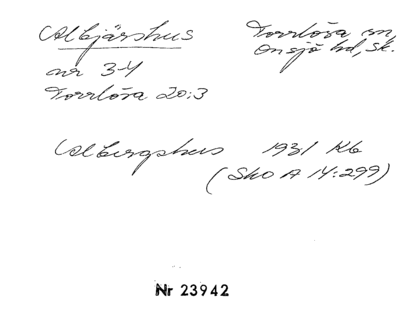 Albjärshus
Torrlösa sn,
Onsjö hd, Sk.
nr 3-4
Torrlösa 20:3
Albergshus 1931 Kb
(Sko A 14:299)
Nr 23942